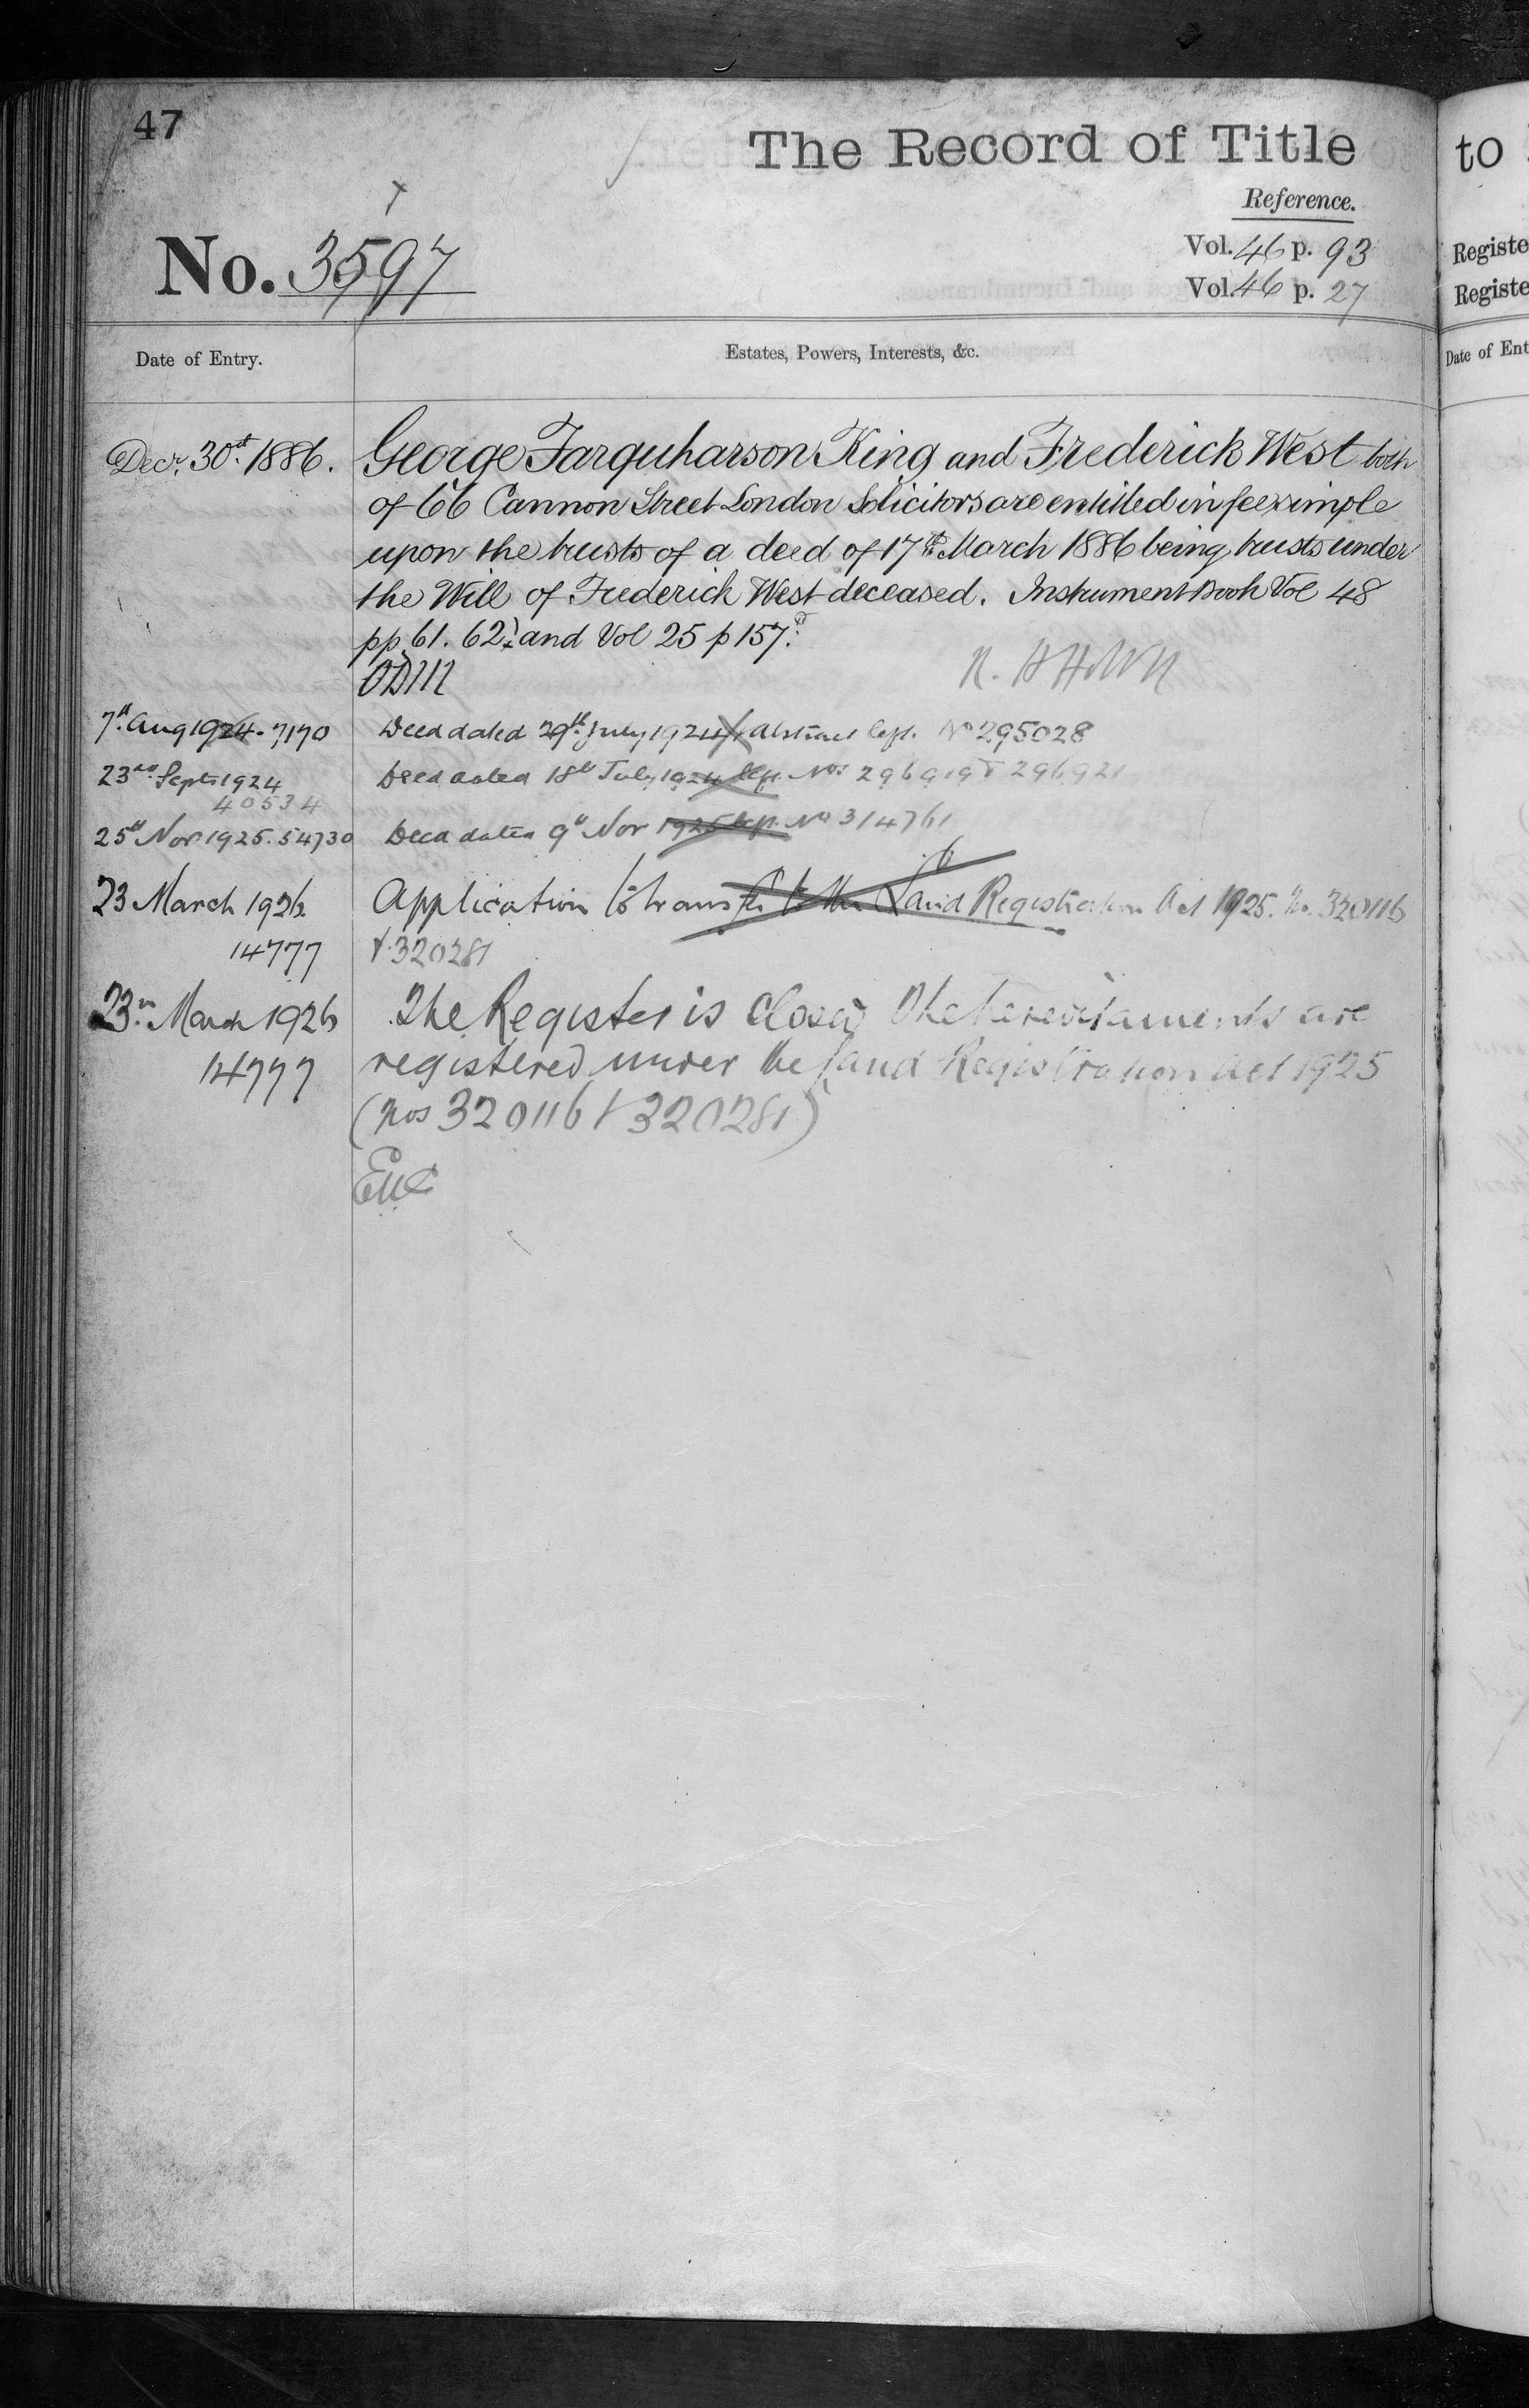 47
The Record of Title
Reference.
No. 3597
Vol. 46 p. 93
Vol. 46 p. 27
Date of Entry.
Estates, Powers, Interests, &c.
Decr. 30th 1886.
George Farquharson King and Frederick West both
of 66 Cannon Street London Solicitors are entitled in fee simple
upon the trusts of a deed of 17th March 1886 being trusts under
the Will of Frederick West deceased. Instrument Book Vol 48
pp 61. 62 and Vol 25 p 157.
7th Aug 1924. 7170
Deed dated 29th July 1924 abstract Cest. No 295028
23rd Sept 1924
40534
Deed dated 18th July 1924 Nos 296919 & 296921
25th Nov 1925. 54730
Deed dated 9th Nov 1925 No 314761
23 March 1926
14777
Application to transfer to the Land Registration Act 1925. No. 320116
& 320281
23rd March 1926
14777
The Register is closed The hereditaments are
registered under the Land Registration Act 1925
(Nos 320116 & 320281)
to
Registe
Registe
Date of Ent